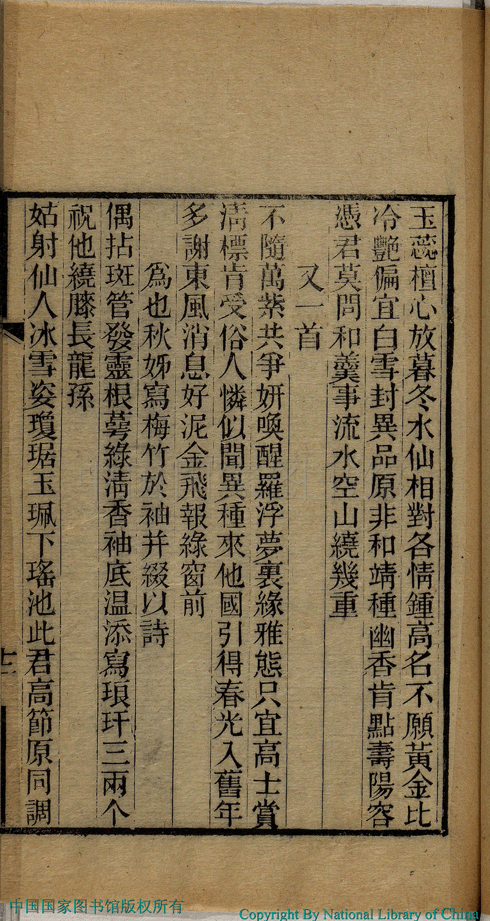 玉蕊檀心放暮冬水仙相對各情鍾高名不願黃金比
冷艷偏宜白雪封異品原非和靖種幽香肯點壽陽容
憑君莫問和羹事流水空山繞幾重
又一首
不隨萬紫共爭妍喚醒羅浮夢裏緣雅態只宜高士賞
清標肯受俗人憐似聞異種來他國引得春光入舊年
多謝東風消息好泥金飛報綠窗前
爲也秋姊寫梅竹於袖并綴以詩
偶拈斑管發靈根萼綠清香袖底温添寫琅玕三兩个
祝他繞膝長龍孫
姑射仙人冰雪姿瓊琚玉珮下瑤池此君高節原同調
十一
中国国家图书馆版权所有
Copyright By National Library of China